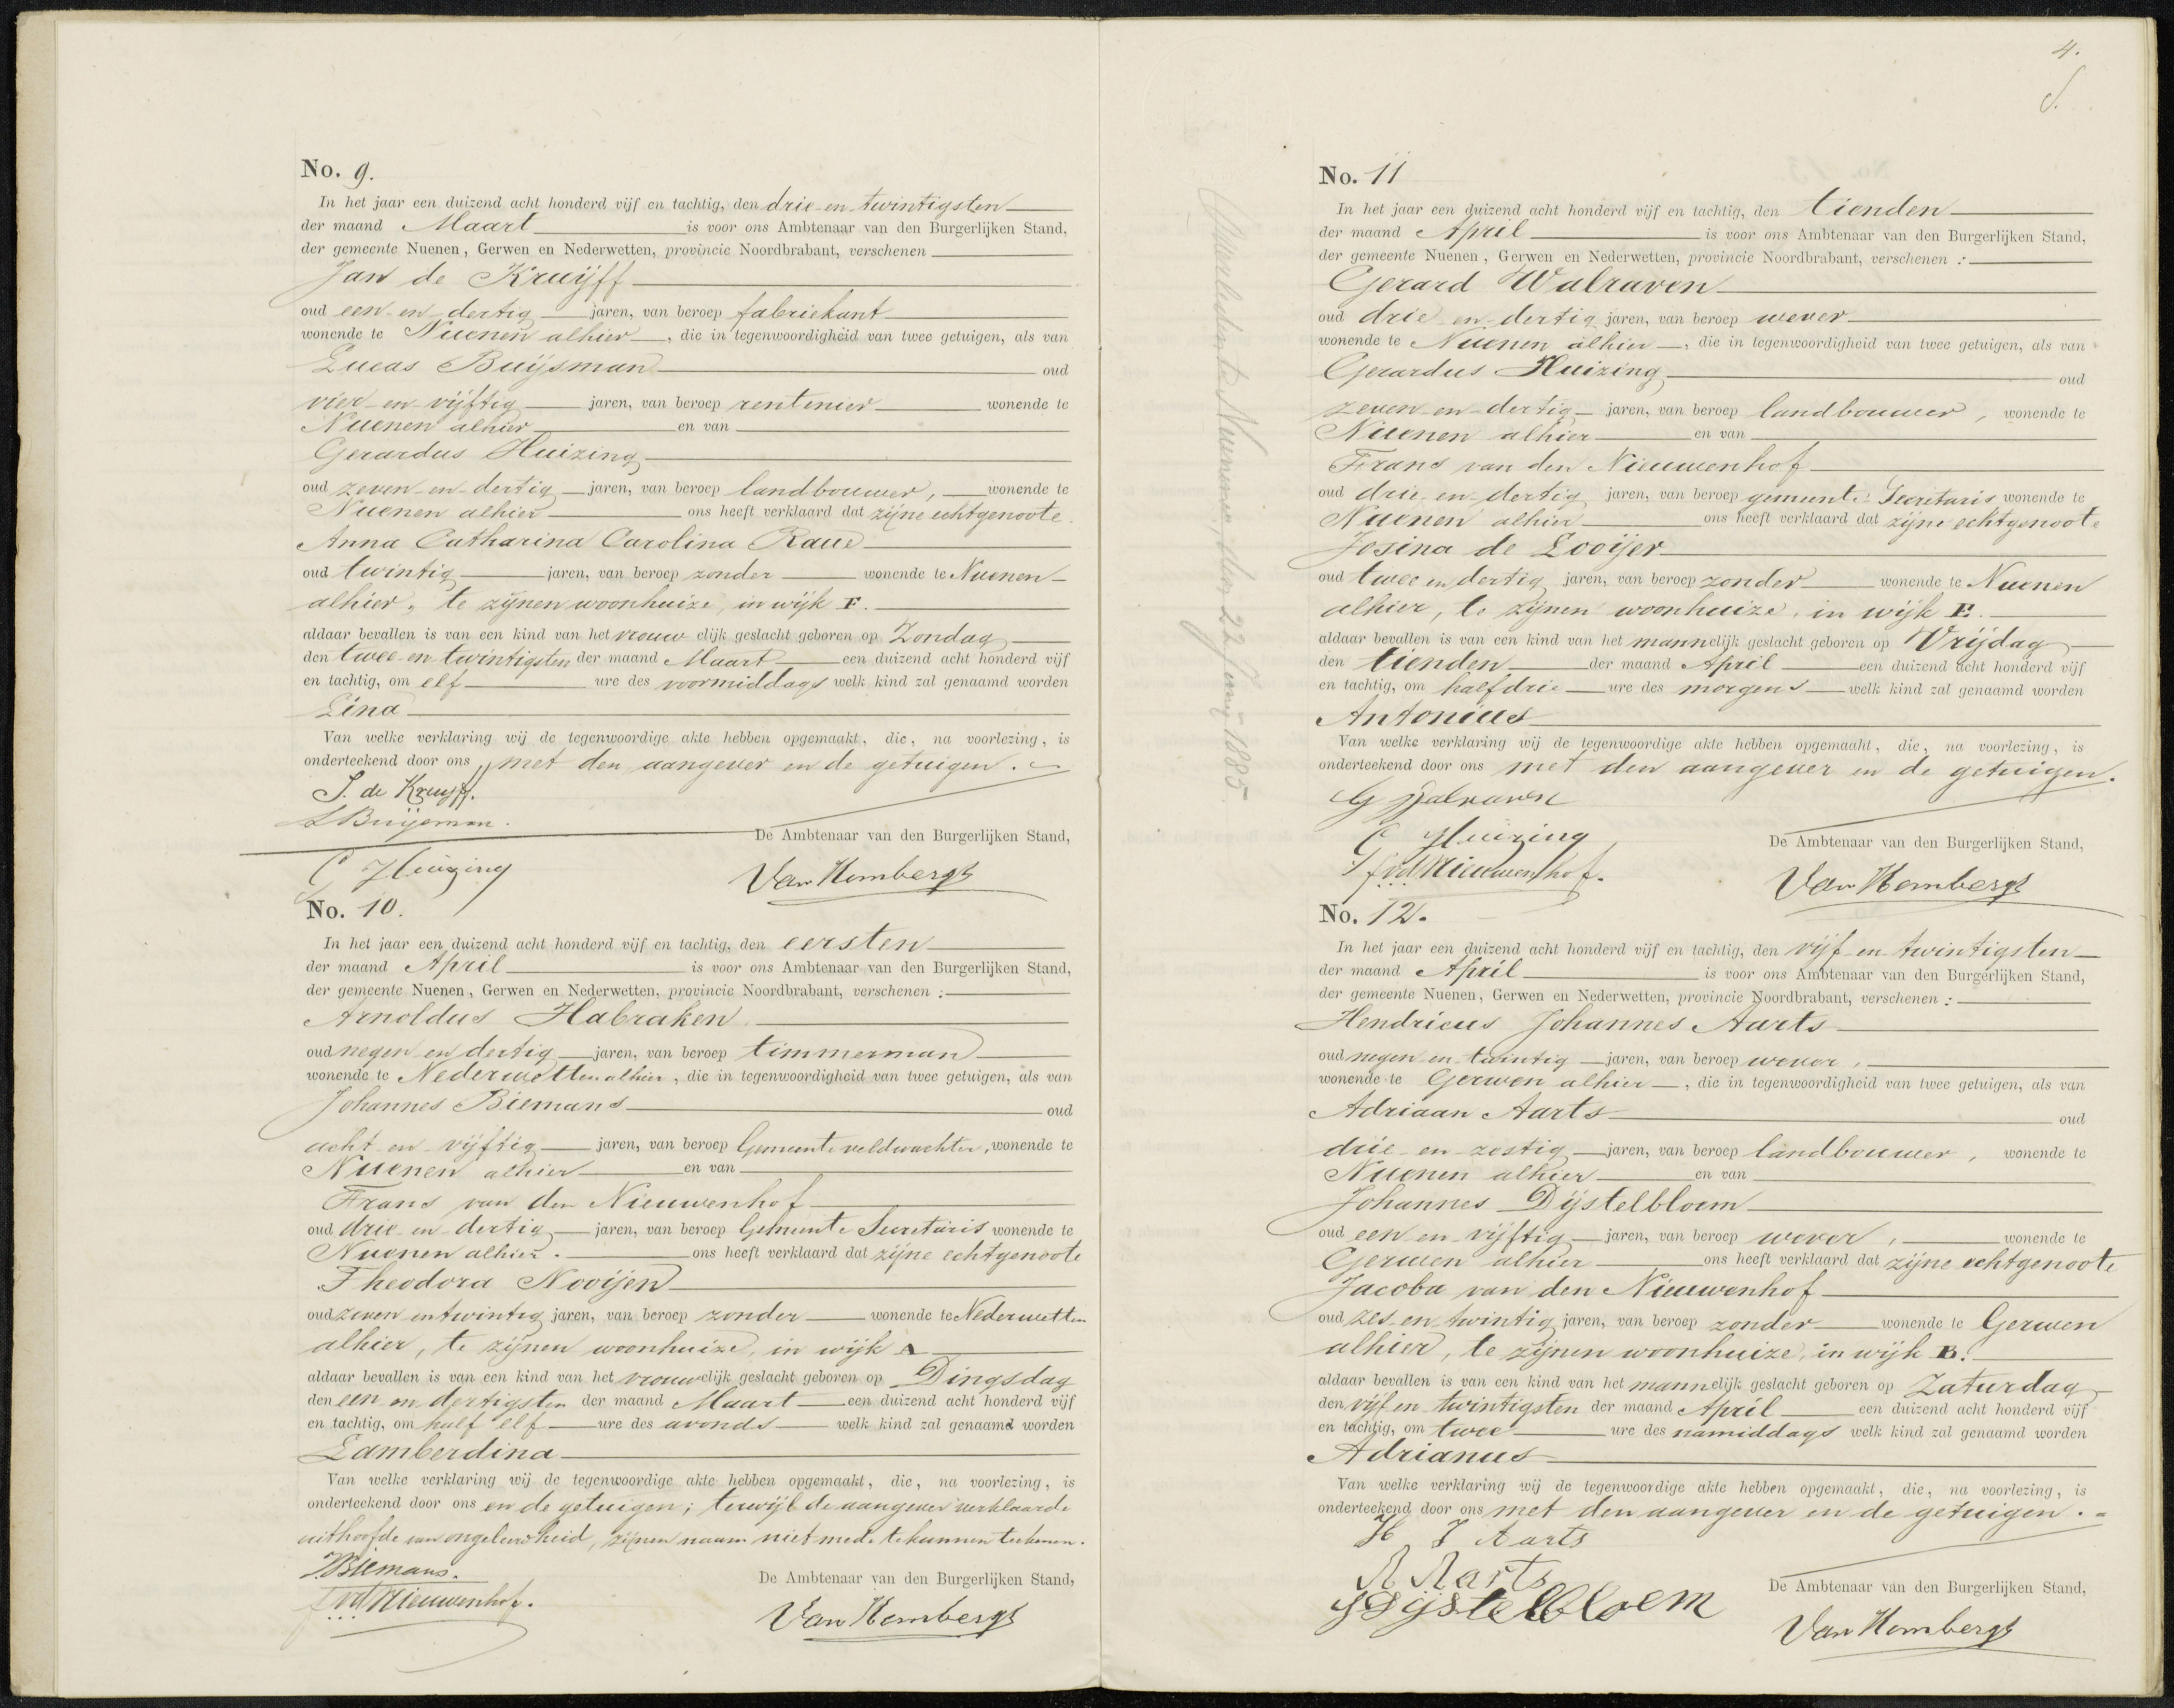 No. 9.
In het jaar een duizend acht honderd vijf en tachtig, den drie-en-twintigsten
der maand Maart is voor ons Ambtenaar van den Burgerlijken Stand,
der gemeente Nuenen, Gerwen en Nederwetten, provincie Noordbrabant, verschenen
Jan de Kruijff
oud een-en-dertig jaren, van beroep fabriekant
wonende te Nuenen alhier, die in tegenwoordigheid van twee getuigen, als van
Lucas Buijsman oud
vier-en-vijftig jaren, van beroep rentenier wonende te
Nuenen alhier en van
Gerardus Huizing
oud zeven-en-dertig jaren, van beroep landbouwer, wonende te
Nuenen alhier ons heeft verklaard dat zijne echtgenoote
Anna Catharina Carolina Raue
oud twintig jaren, van beroep zonder wonende te Nuenen
alhier, te zijnen woonhuize, in wijk F.
aldaar bevallen is van een kind van het vrouwelijk geslacht geboren op Zondag
den twee-en-twintigsten der maand Maart een duizend acht honderd vijf
en tachtig, om elf ure des voormiddags welk kind zal genaamd worden
Lina
Van welke verklaring wij de tegenwoordige akte hebben opgemaakt, die, na voorlezing, is
onderteekend door ons, met den aangever en de getuigen.
J. de Kruyff.
L Buijsman.
De Ambtenaar van den Burgerlijken Stand,
G Huizing
Van Hombergh
No. 10.
In het jaar een duizend acht honderd vijf en tachtig, den eersten
der maand April is voor ons Ambtenaar van den Burgerlijken Stand,
der gemeente Nuenen, Gerwen en Nederwetten, provincie Noordbrabant, verschenen :
Arnoldus Habraken
oud negen en dertig jaren, van beroep timmerman
wonende te Nederwetten alhier, die in tegenwoordigheid van twee getuigen, als van
Johannes Biemans oud
acht-en-vijftig jaren, van beroep Gemeente veldwachter, wonende te
Nuenen alhier en van
Frans van den Nieuwenhof
oud drie-en-dertig jaren, van beroep Gemeente Secretaris wonende te
Nuenen alhier. ons heeft verklaard dat zijne echtgenoote
Theodora Nooijen
oud zeven en twintig jaren, van beroep zonder wonende te Nederwetten
alhier, te zijnen woonhuize, in wijk A
aldaar bevallen is van een kind van het vrouwelijk geslacht geboren op Dingsdag
den een en dertigsten der maand Maart een duizend acht honderd vijf
en tachtig, om half elf ure des avonds welk kind zal genaamd worden
Lamberdina
Van welke verklaring wij de tegenwoordige akte hebben opgemaakt, die, na voorlezing, is
onderteekend door ons en de getuigen; terwijl de aangever verklaarde
uithoofde van ongeleerdheid, zijnen naam niet mede te kunnen teekenen.
J Biemans.
De Ambtenaar van den Burgerlijken Stand,
f vd Nieuwenhof.
Van Hombergh
4.
No. 11
In het jaar een duizend acht honderd vijf en tachtig, den tienden
der maand April is voor ons Ambtenaar van den Burgerlijken Stand,
der gemeente Nuenen, Gerwen en Nederwetten, provincie Noordbrabant, verschenen :
Gerard Walraven
oud drie en dertig jaren, van beroep wever
wonende te Nuenen alhier, die in tegenwoordigheid van twee getuigen, als van
Gerardus Huizing oud
zeven-en-dertig jaren, van beroep landbouwer, wonende te
Nuenen alhier en van
Frans van den Nieuwenhof
oud drie-en-dertig jaren, van beroep gemeente Secretaris wonende te
Nuenen alhier ons heeft verklaard dat zijne echtgenoote
Josina de Looijer
oud twee en dertig jaren, van beroep zonder wonende te Nuenen
alhier, te zijnen woonhuize, in wijk E.
aldaar bevallen is van een kind van het mannelijk geslacht geboren op Vrijdag
den tienden der maand April een duizend acht honderd vijf
en tachtig, om half drie ure des morgens welk kind zal genaamd worden
Antonius
Van welke verklaring wij de tegenwoordige akte hebben opgemaakt, die, na voorlezing, is
onderteekend door ons met den aangever en de getuigen.
G Walraven
G Huizing
De Ambtenaar van den Burgerlijken Stand,
f vd Nieuwenhof.
Van Hombergh
No. 12.
In het jaar een duizend acht honderd vijf en tachtig, den vijf-en-twintigsten
der maand April is voor ons Ambtenaar van den Burgerlijken Stand,
der gemeente Nuenen, Gerwen en Nederwetten, provincie Noordbrabant, verschenen :
Hendricus Johannes Aarts
oud negen-en-twintig jaren, van beroep wever,
wonende te Gerwen alhier, die in tegenwoordigheid van twee getuigen, als van
Adriaan Aarts oud
drie-en-zestig jaren, van beroep landbouwer, wonende te
Nuenen alhier en van
Johannes Dijstelbloem
oud een-en-vijftig jaren, van beroep wever, wonende te
Gerwen alhier ons heeft verklaard dat zijne echtgenoote
Jacoba van den Nieuwenhof
oud zes-en-twintig jaren, van beroep zonder wonende te Gerwen
alhier, te zijnen woonhuize, in wijk B.
aldaar bevallen is van een kind van het mannelijk geslacht geboren op Zaturdag
den vijf en twintigsten der maand April een duizend acht honderd vijf
en tachtig, om twee ure des namiddags welk kind zal genaamd worden
Adrianus
Van welke verklaring wij de tegenwoordige akte hebben opgemaakt, die, na voorlezing, is
onderteekend door ons met den aangever en de getuigen.
H J Aarts
A Aarts
De Ambtenaar van den Burgerlijken Stand,
J Dijstelbloem
Van Hombergh